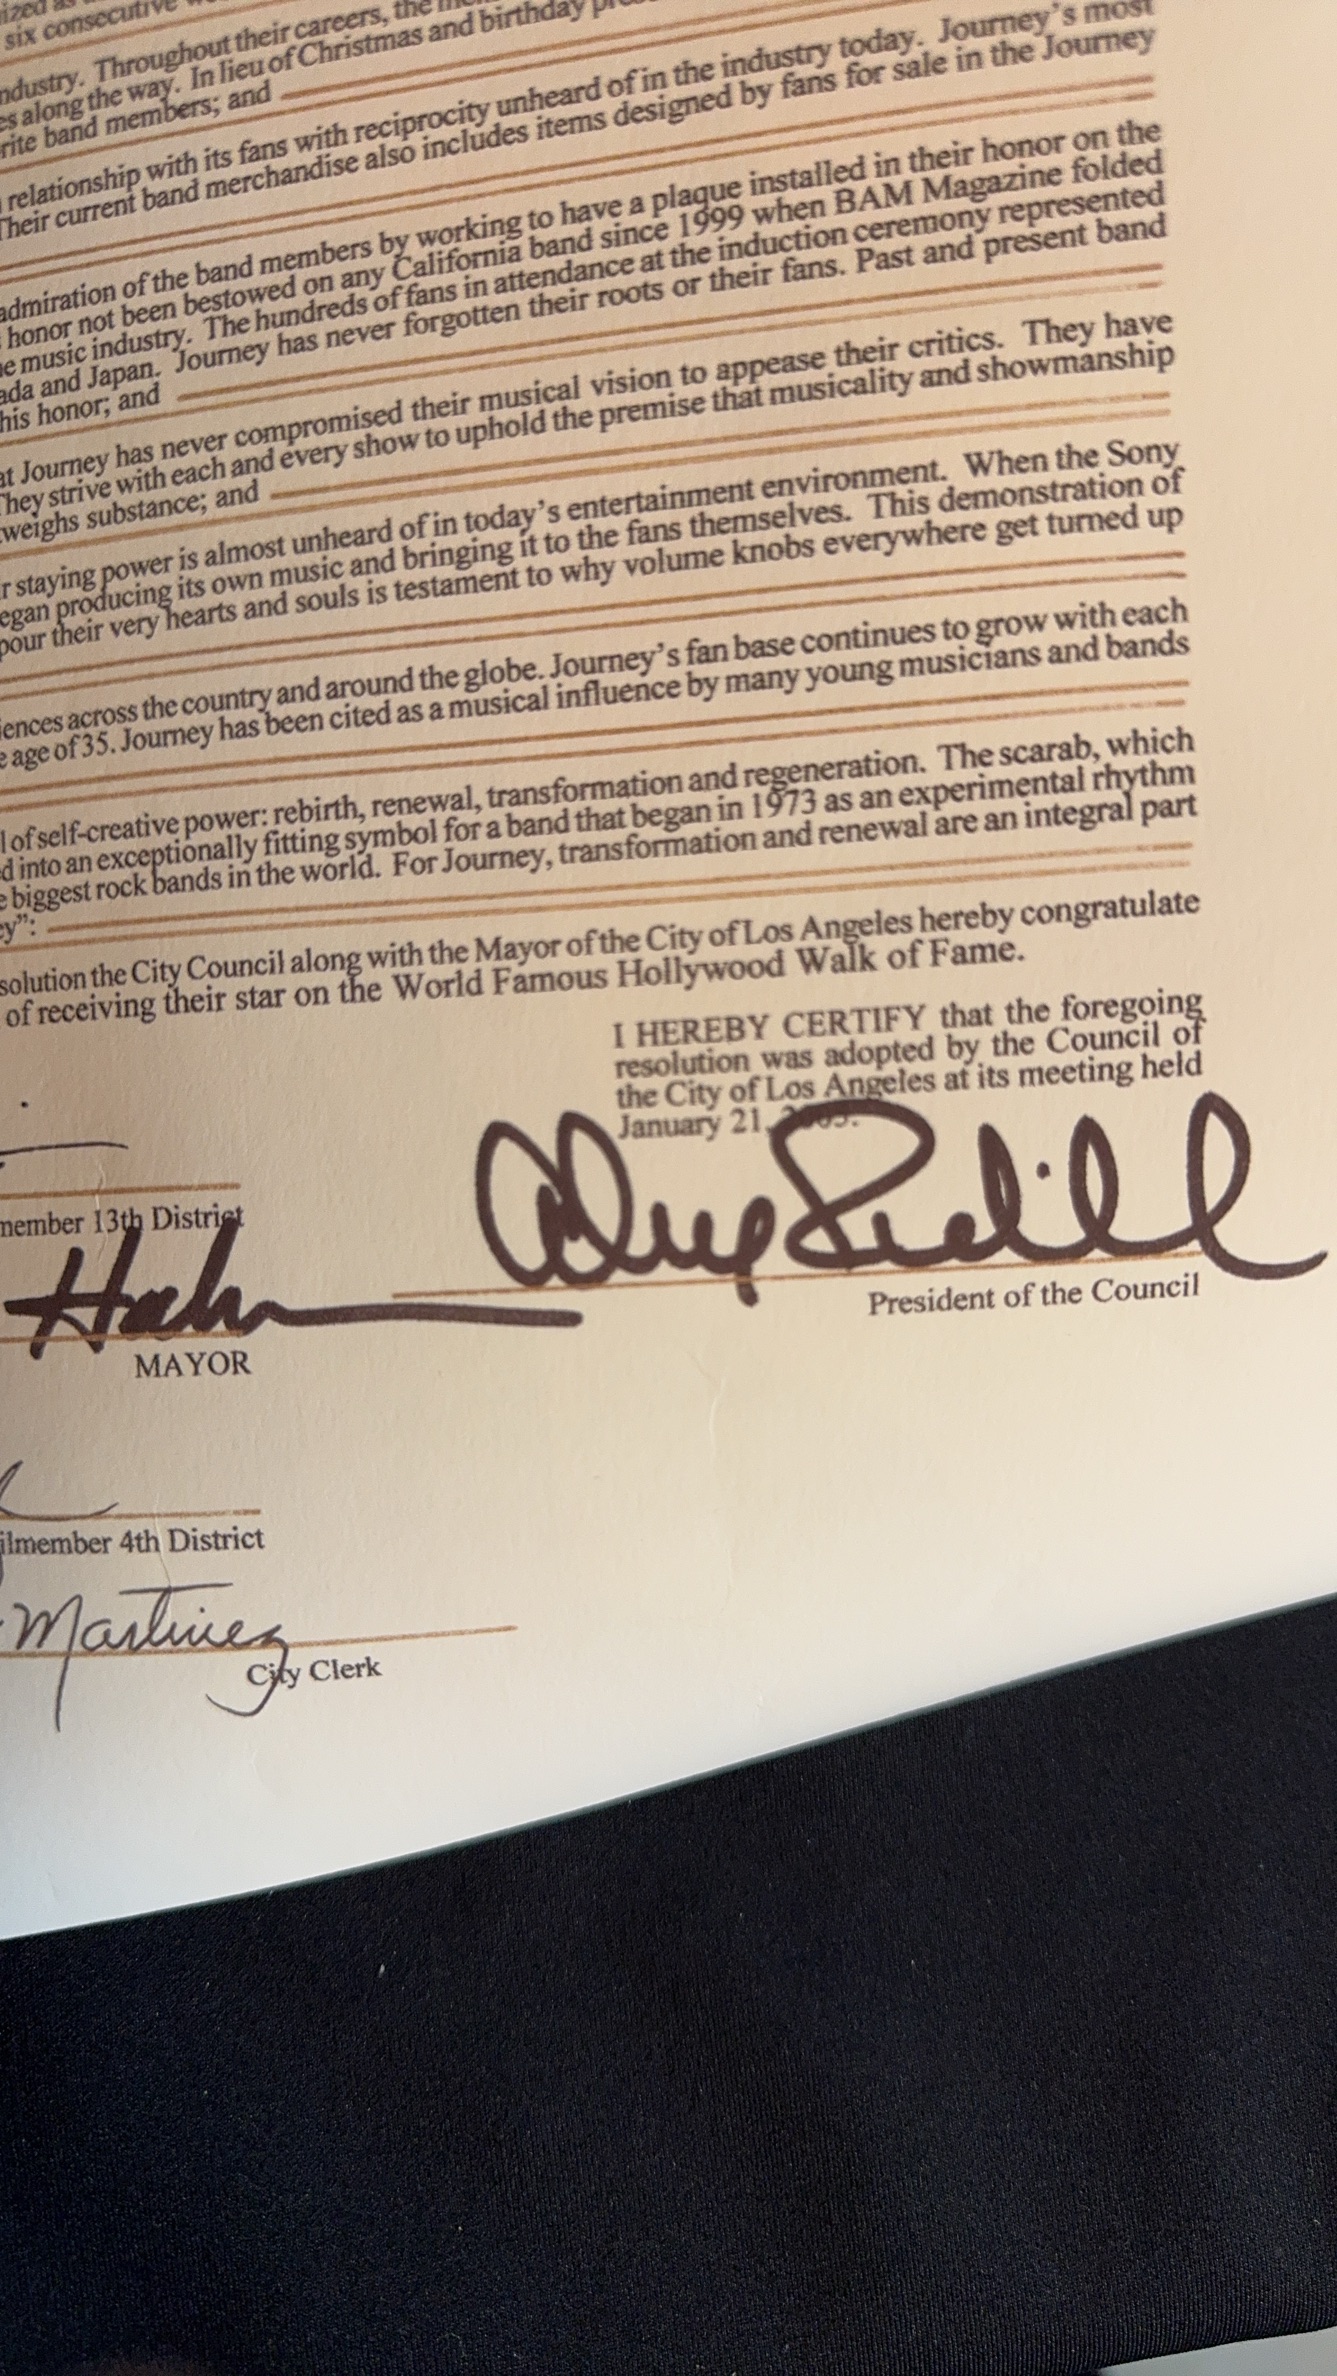 six consecutive
ndustry. Throughout their careers, the
es along the way. In lieu of Christmas and birthday
rite band members; and
relationship with its fans with reciprocity unheard of in the industry today. Journey's most
Their current band merchandise also includes items designed by fans for sale in the Journey
admiration of the band members by working to have a plaque installed in their honor on the
honor not been bestowed on any California band since 1999 when BAM Magazine folded
e music industry. The hundreds of fans in attendance at the induction ceremony represented
ada and Japan. Journey has never forgotten their roots or their fans. Past and present band
his honor; and
at Journey has never compromised their musical vision to appease their critics. They have
They strive with each and every show to uphold the premise that musicality and showmanship
weighs substance; and
r staying power is almost unheard of in today's entertainment environment. When the Sony
egan producing its own music and bringing it to the fans themselves. This demonstration of
pour their very hearts and souls is testament to why volume knobs everywhere get turned up
iences across the country and around the globe. Journey's fan base continues to grow with each
e age of 35. Journey has been cited as a musical influence by many young musicians and bands
l of self-creative power: rebirth, renewal, transformation and regeneration. The scarab, which
d into an exceptionally fitting symbol for a band that began in 1973 as an experimental rhythm
e biggest rock bands in the world. For Journey, transformation and renewal are an integral part
ey":
solution the City Council along with the Mayor of the City of Los Angeles hereby congratulate
of receiving their star on the World Famous Hollywood Walk of Fame.
I HEREBY CERTIFY that the foregoing
resolution was adopted by the Council of
the City of Los Angeles at its meeting held
January 21, 2005.
member 13th District
Hahn
MAYOR
President of the Council
ilmember 4th District
Martinez
City Clerk